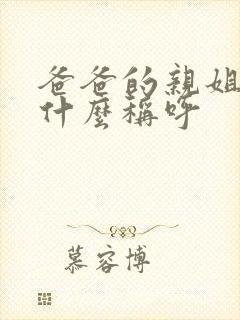 爸爸的親姐
什麼稱呼
慕容博